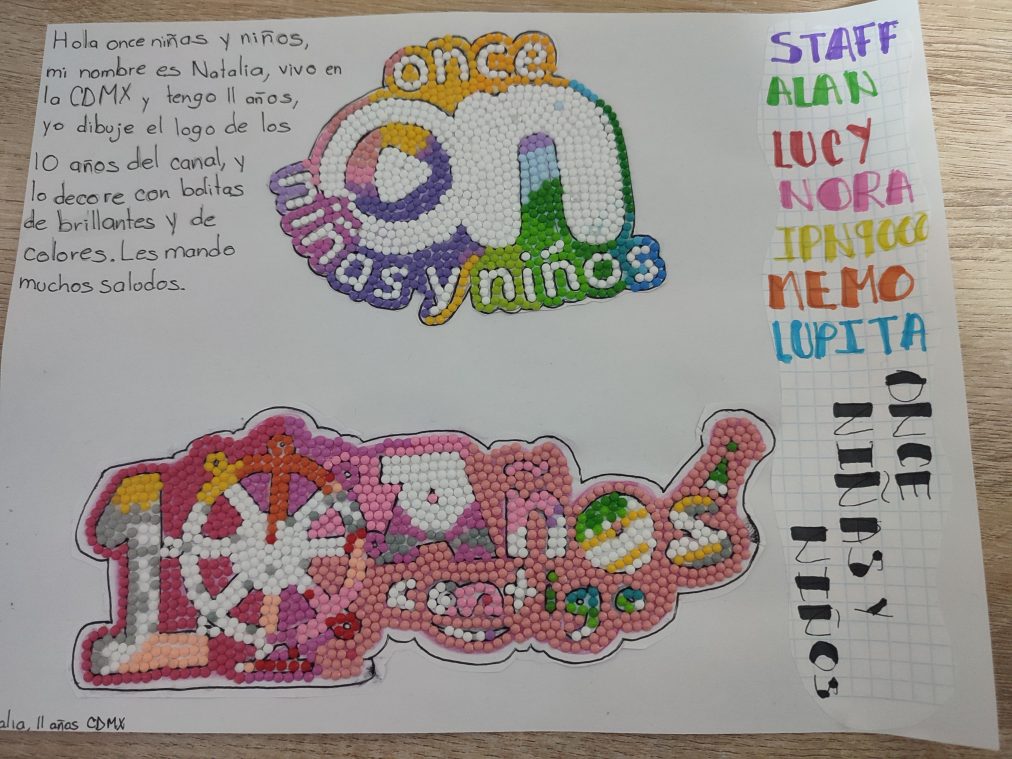 Hola once niñas y niños,
mi nombre es Natalia, vivo en
la CDMX y tengo 11 años,
yo dibuje el logo de los
10 años del canal, y
lo decore con bolitas
de brillantes y de
colores. Les mando
muchos saludos.
once
on
niñas y niños
STAFF
ALAN
LUCY
NORA
IPN9000
MEMO
LUPITA
ONCE
NIÑAS Y
NIÑOS
10 AÑOS
contigo
alia, 11 años CDMX